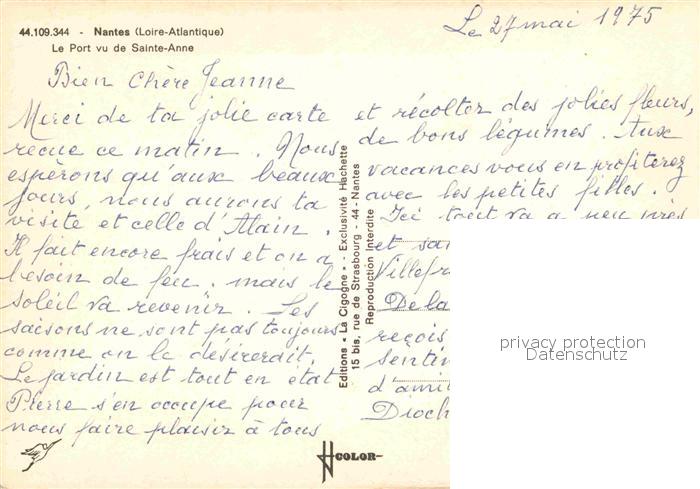 44.109.344 - Nantes (Loire-Atlantique)
Le Port vu de Sainte-Anne
Le 27 mai 1975
Bien Chère Jeanne
Merci de ta jolie carte
recue ce matin. Nous
espèrons qu'aux beaux
jours, nous aurons ta
visite et celle d'Alain.
Il fait encore frais et on a
besoin de feu. mais le
soleil va revenir. Les
saisons ne sont pas toujours
comme on le désirerait.
Le jardin est tout en état
Pierre s'en occupe pour
nous faire plaisir à tous
et récolter des jolies fleurs,
de bons légumes. Aux
vacances vous en profiterez
avec les petites filles.
Ici tout va a peu près
et
De la
reçois
d'ami
Editions « La Cigogne » - Exclusivité Hachette
15 bis, rue de Strasbourg - 44 - Nantes
Reproduction Interdite
COLOR
privacy protection
Datenschutz